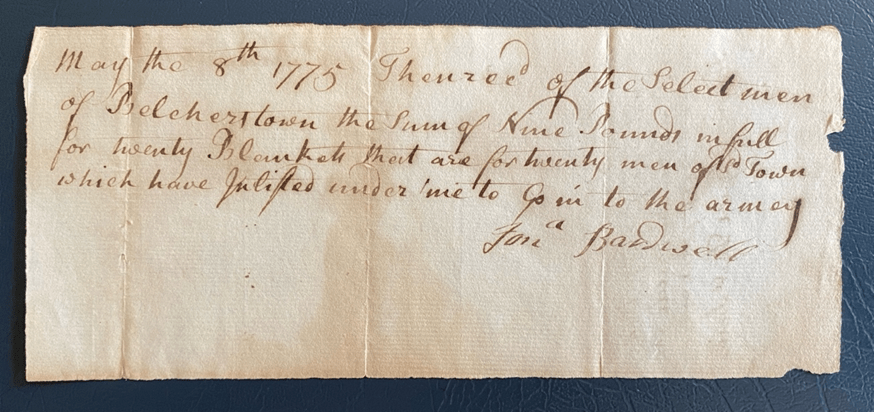 May the 8th 1775 Then recd of the Select men
of Belcherstown the Sum of Nine Pounds in full
for twenty Blankets that are for twenty men of sd Town
which have Inlisted under me to Go in to the armey
Jona Bardwell